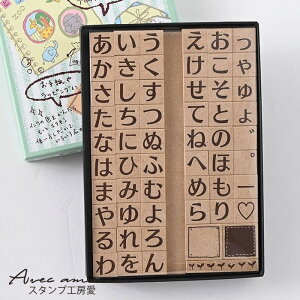 あいう
かきく
さしす
たちつ
なにぬ
はひふ
まみむ
やゆよ
るれろ
わをん
えおつ
けこや
せそゆ
てとよ
ねの゛
へほ。
めもー
らり♡
Avec ami
スタンプ工房愛